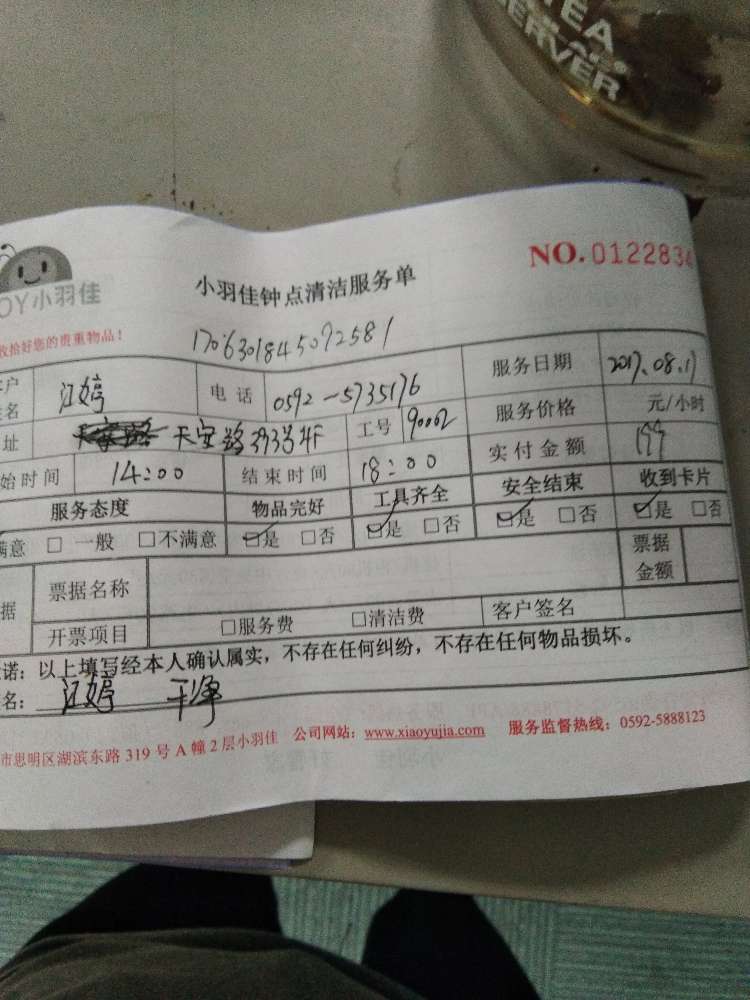 TEA
SERVER
NO.0122834
OY小羽佳
小羽佳钟点清洁服务单
收拾好您的贵重物品!
1706301845092581
客户姓名 江婷 电话 0592-5735176 服务日期 2017.08.17
址 天安路393号4F 工号 90002 服务价格 元/小时
始时间 14:00 结束时间 18:00 实付金额 199
服务态度 物品完好 工具齐全 安全结束 收到卡片
满意 □ 一般 □不满意 ☑是 □否 ☑是 □否 ☑是 □否 ☑是 □否
据 票据名称 票据金额
开票项目 □服务费 □清洁费 客户签名
诺:以上填写经本人确认属实,不存在任何纠纷,不存在任何物品损坏。
名: 江婷 干净
市思明区湖滨东路 319 号 A 幢 2 层小羽佳 公司网站:www.xiaoyujia.com 服务监督热线:0592-5888123